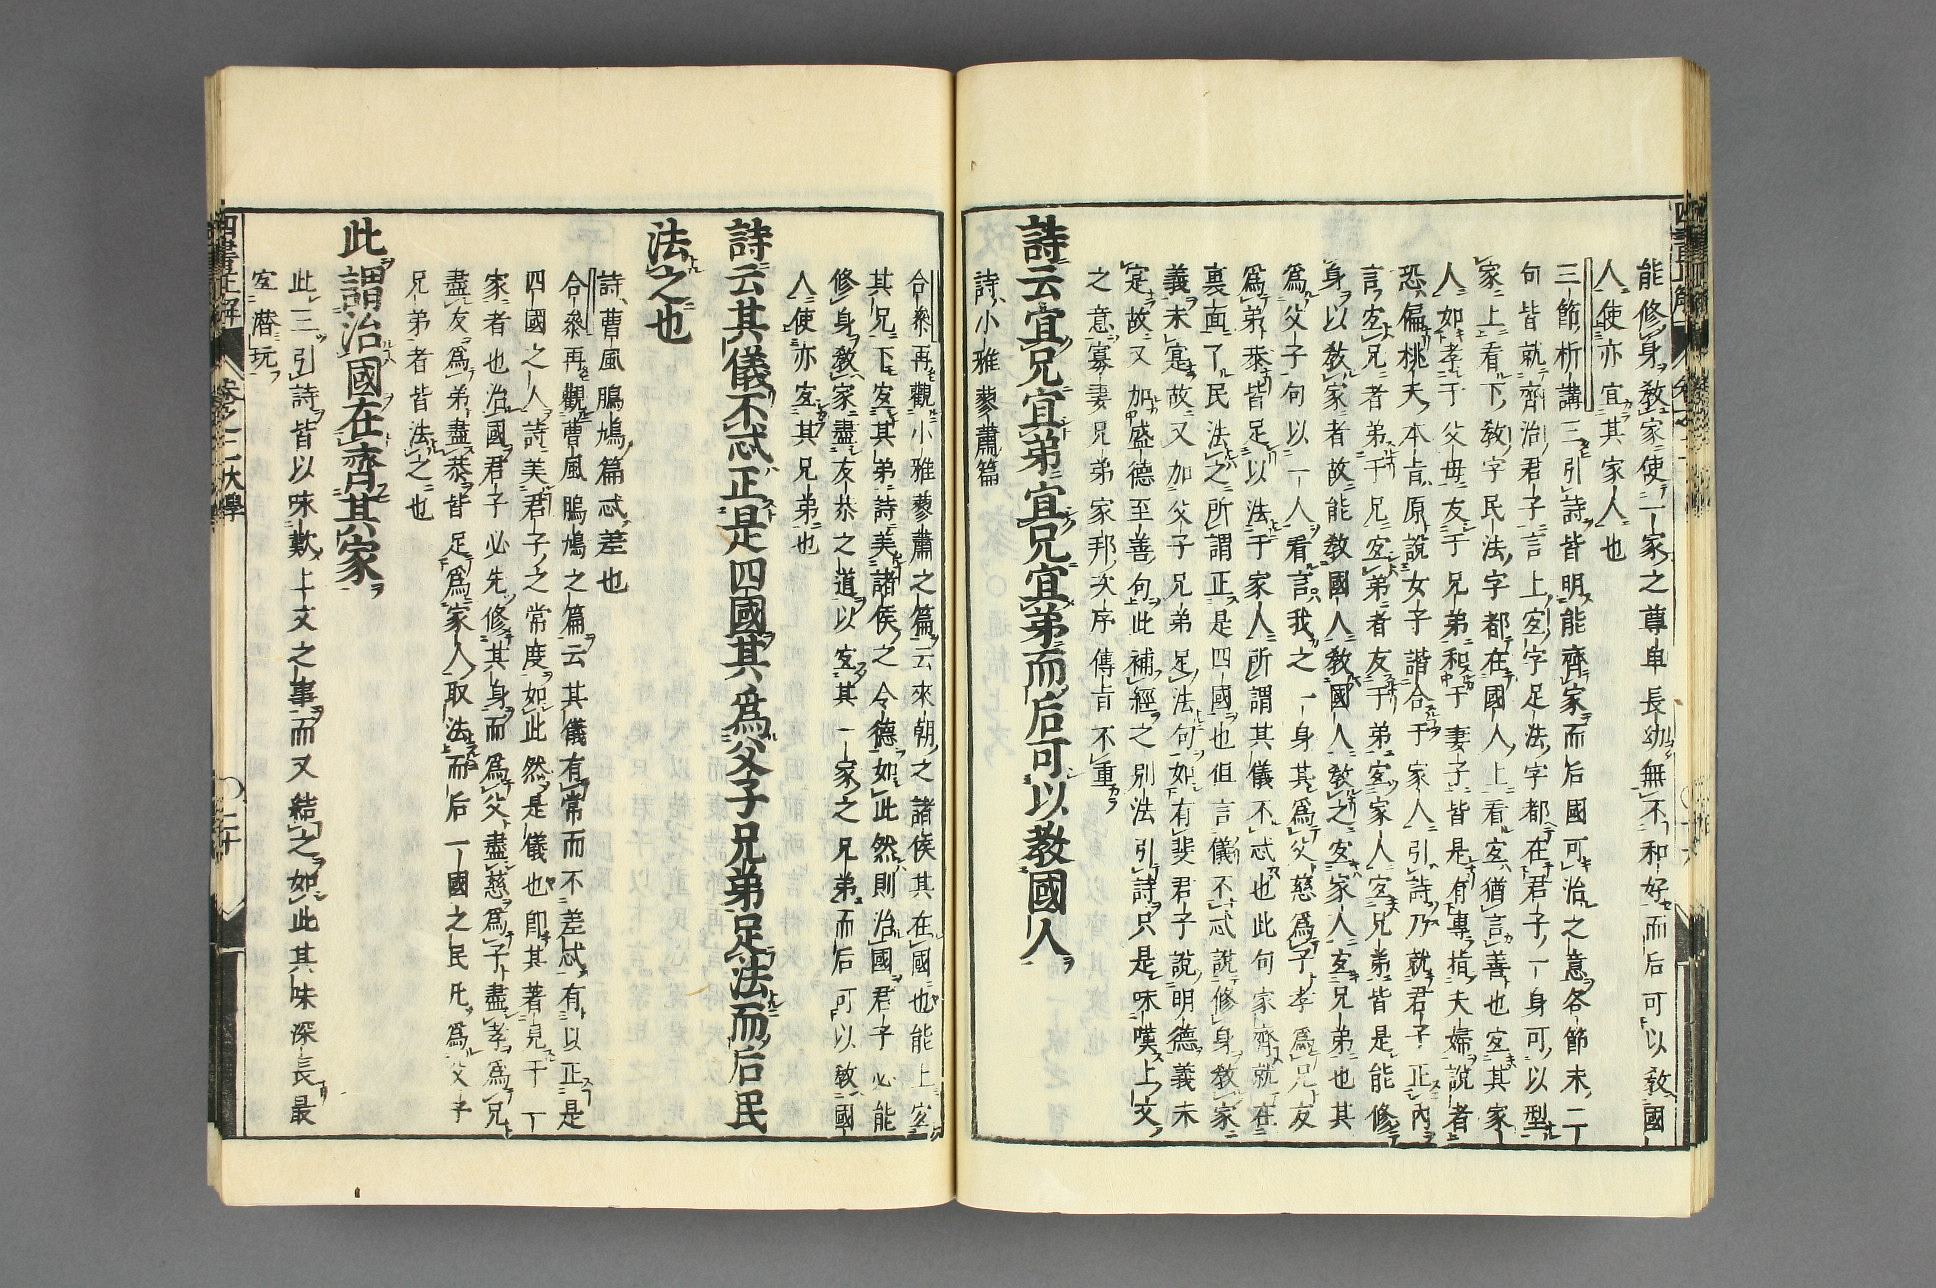 能修身教家使一家之尊卑長幼無不和好而后可以教國
人使亦宜其家人也
三節析講三引詩皆明能齊家而后國可治之意各節末二
句皆就齊治君子言上宜字足法字都在君子一身可以型
家上看下教字民法字都在國人上看宜猶言善也宜其家
人如孝于父母友于兄弟和于妻子皆是有專指夫婦說者
恐偏桃夭本旨原說女子諧合于家人引詩乃就君子正內
言宜兄者弟于兄宜弟者友于弟宜家人宜兄弟皆是能修
身以教家者故能教國人教國人教之宜家人宜兄弟也其
為父子句以一人看言我之一身其為父慈為子孝為兄友
為弟恭皆足以法于家人所謂其儀不忒也此句家齊就在
裏面了民法之所謂正是四國也但言儀不忒說修身教家
義未寔故又加父子兄弟足法句如有斐君子說明德義未
寔故又加盛德至善句此補經之別法引詩只是咏嘆上文
之意寡妻兄弟家邦次序傳旨不重
詩云宜兄宜弟宜兄宜弟而后可以教國人
詩小雅蓼蕭篇
合參再觀小雅蓼蕭之篇云來朝之諸侯其在國也能上宜
其兄下宜其弟詩美諸侯之令德如此然則治國君子必能
修身教家盡友恭之道以宜其一家之兄弟而后可以教國
人使亦宜其兄弟也
詩云其儀不忒正是四國其為父子兄弟足法而后民
法之也
詩曹風鳲鳩篇忒差也
合參再觀曹風鳲鳩之篇云其儀有常而不差忒有以正是
四國之人詩美君子之常度如此然是儀也卽其著見于丁
家者也治國君子必先修其身而為父盡慈為子盡孝為兄
盡友為弟盡恭皆足為家人取法而后一國之民凡為父子
兄弟者皆法之也
此謂治國在齊其家
此三引詩皆以咏歎上文之事而又結之如此其味深長最
宜潜玩
四書正解 卷之二大學 二十